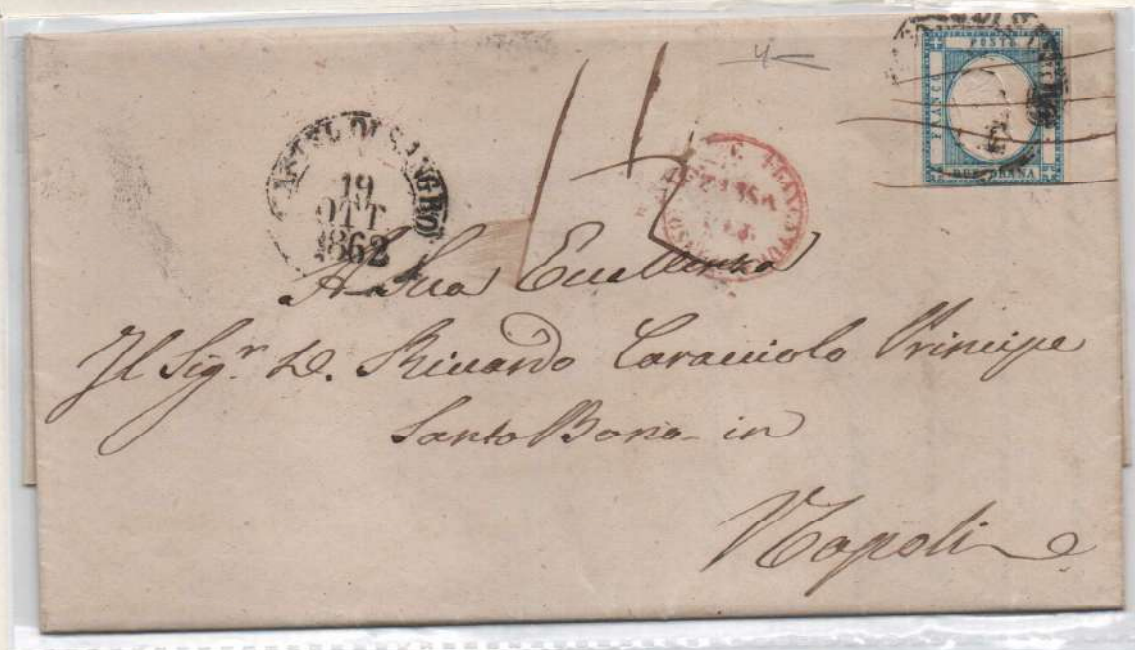 POSTE
FRANCO
DUE GRANA
CASTEL DI SANGRO
19
OTT
1862
A Sua Eccellenza
Il Sigr. D. Riccardo Caracciolo Principe
Santo Bono in
Napoli